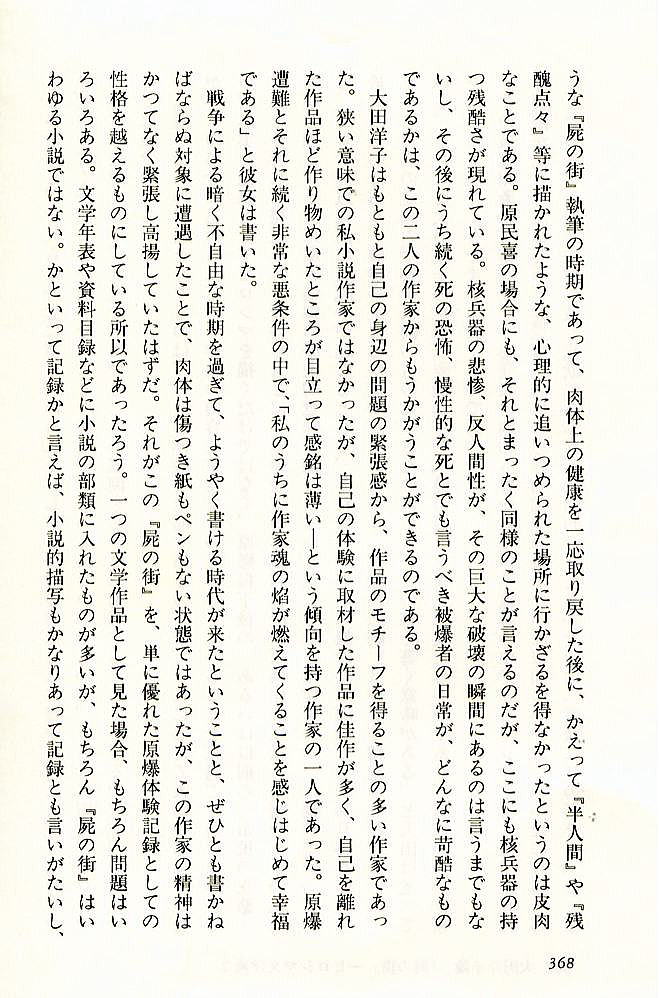 うな『屍の街』執筆の時期であって、肉体上の健康を一応取り戻した後に、かえって『半人間』や『残
醜点々』等に描かれたような、心理的に追いつめられた場所に行かざるを得なかったというのは皮肉
なことである。原民喜の場合にも、それとまったく同様のことが言えるのだが、ここにも核兵器の持
つ残酷さが現れている。核兵器の悲惨、反人間性が、その巨大な破壊の瞬間にあるのは言うまでもな
いし、その後にうち続く死の恐怖、慢性的な死とでも言うべき被爆者の日常が、どんなに苛酷なもの
であるかは、この二人の作家からもうかがうことができるのである。
大田洋子はもともと自己の身辺の問題の緊張感から、作品のモチーフを得ることの多い作家であっ
た。狭い意味での私小説作家ではなかったが、自己の体験に取材した作品に佳作が多く、自己を離れ
た作品ほど作り物めいたところが目立って感銘は薄い―という傾向を持つ作家の一人であった。原爆
遭難とそれに続く非常な悪条件の中で、「私のうちに作家魂の焔が燃えてくることを感じはじめて幸福
である」と彼女は書いた。
戦争による暗く不自由な時期を過ぎて、ようやく書ける時代が来たということと、ぜひとも書かね
ばならぬ対象に遭遇したことで、肉体は傷つき紙もペンもない状態ではあったが、この作家の精神は
かつてなく緊張し高揚していたはずだ。それがこの『屍の街』を、単に優れた原爆体験記録としての
性格を越えるものにしている所以であったろう。一つの文学作品として見た場合、もちろん問題はい
ろいろある。文学年表や資料目録などに小説の部類に入れたものが多いが、もちろん『屍の街』はい
わゆる小説ではない。かといって記録かと言えば、小説的描写もかなりあって記録とも言いがたいし、
368